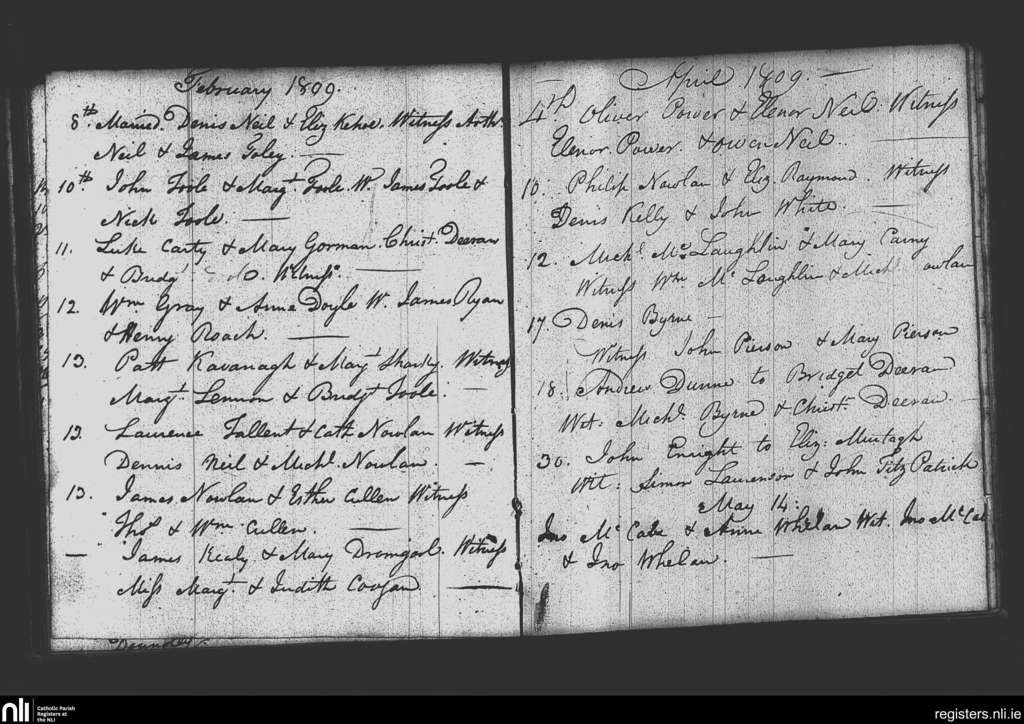 February 1809.
8th. Married. Denis Neil & Eliz Kehoe. Witness Arthr
Neil & James Foley.
10th John Toole & Margt Toole. W. James Toole &
Nick Toole.
11. Luke Carty & Mary Gorman. Christ. Deeran
& Bridgt Witness.
12. Wm Gray & Anne Doyle W. James Ryan
& Henry Roach.
13. Patt Kavanagh & Mary Sharky. Witness
Margt Lennon & Bridgt Toole.
13. Laurence Tallent & Cath Nowlan Witness
Dennis Neil & Michl. Nowlan.
13. James Nowlan & Esther Cullen Witness
Thos & Wm. Cullen.
James Kealy & Mary Dromgool. Witness
Miss Margt. & Judith Coogan
April 1809.
4th Oliver Power & Elenor Neil. Witness
Elenor Power. & Owen Neil.
10. Philip Nowlan & Eliz. Raymond. Witness
Denis Kelly & John White.
12. Michl. Mc Laughlin & Mary Carny
Witness Wm Mc Laughlin & Michl owlan
17. Denis Byrne
Witness John Pierson & Mary Pierson
18. Andrew Dunne to Bridget Deeran
Wit: Michl. Byrne & Christ. Deeran.
30. John Enright to Eliz. Murtagh
Wit: Simon Laurenson & John FitzPatrick
May 14.
Jno Mc Cabe & Anne Whelan Wit. Jno McCabe
& Jno Whelan.
nli
Catholic Parish
Registers at
the NLI
registers.nli.ie